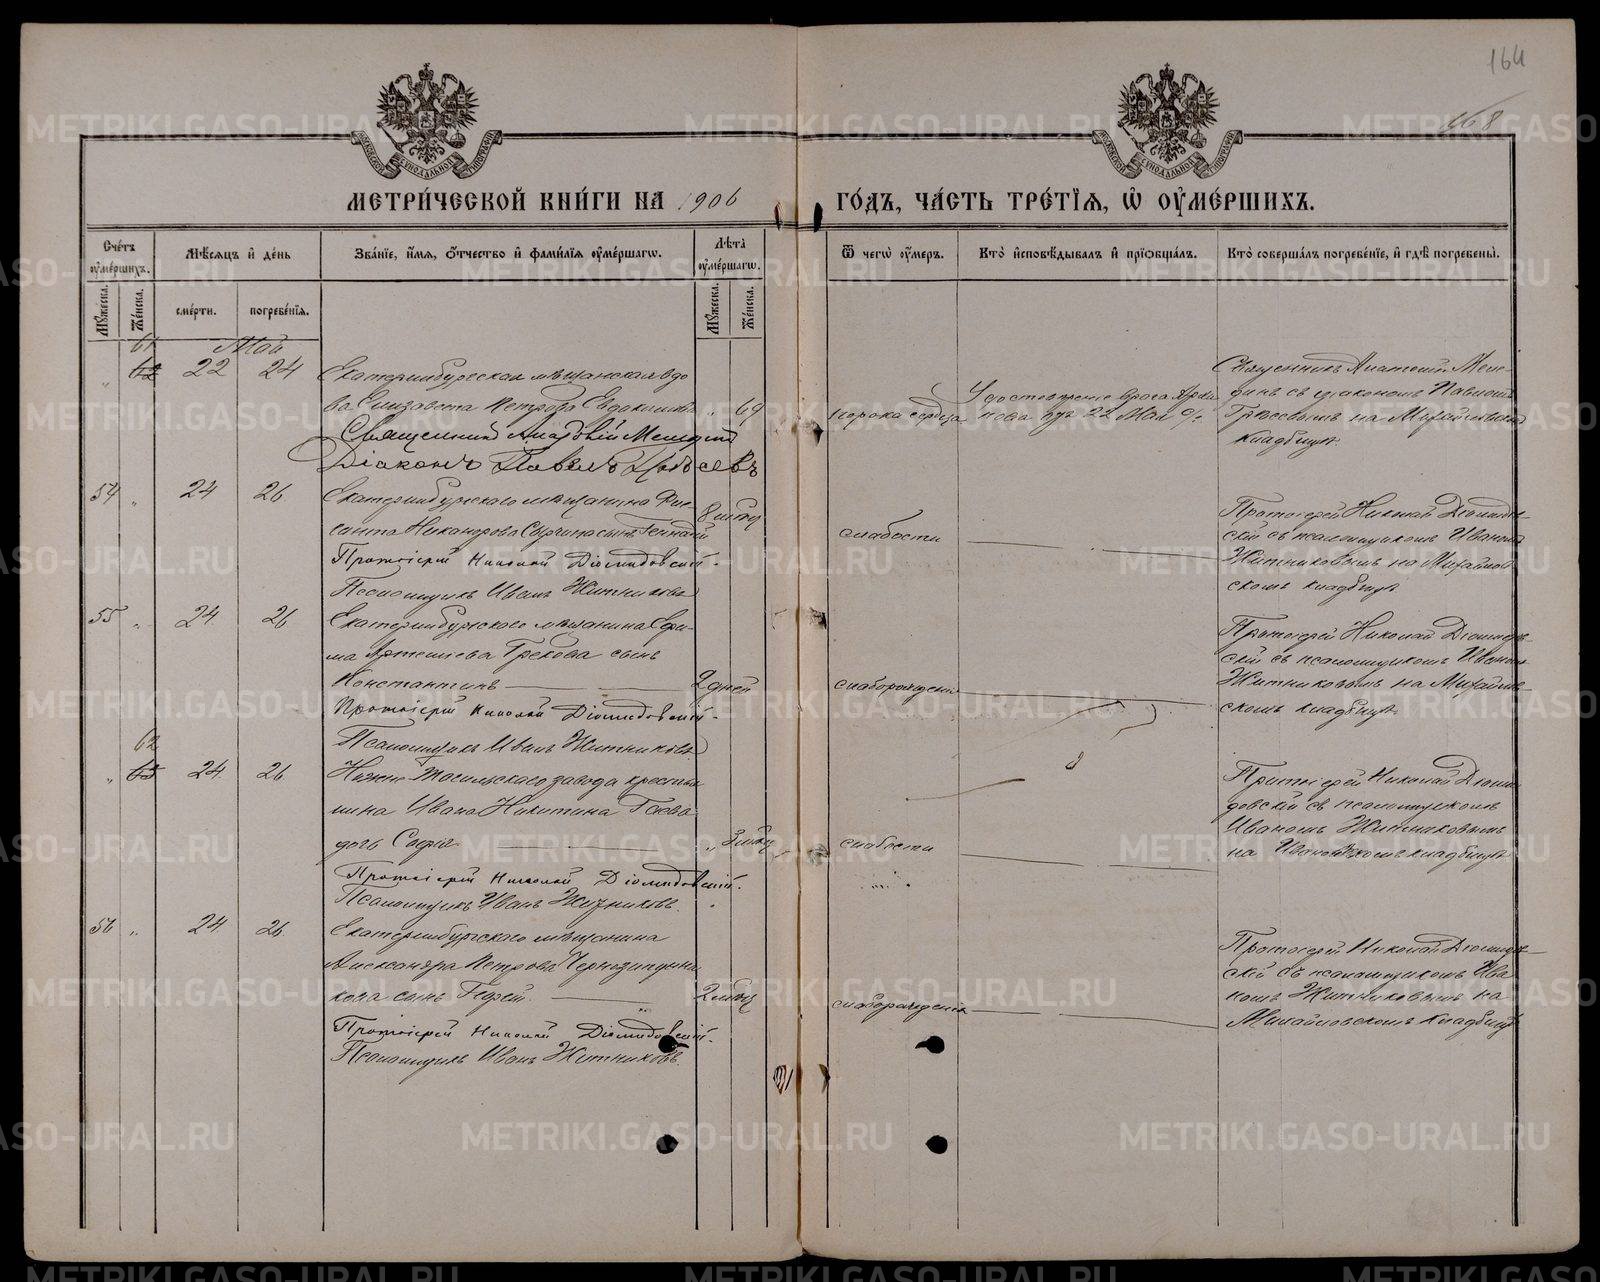 164
168
МЕТРИ́ЧЕСКОЙ КНИ́ГИ НА 1906 ГО́ДЪ, ЧА́СТЬ ТРЕ́ТІѦ, Ѡ҆ ОУ҆МЕ́РШИХЪ.
Сче́тъ оу҆ме́ршихъ.
Мѣ́сѧцъ и҆ де́нь
Зва́нїе, и҆́мѧ, ѻ҆́тчество и҆ фами́лїѧ оу҆ме́ршагѡ.
Лѣ́та оу҆ме́ршагѡ.
Ѿ чегѡ̀ оу҆́меръ.
Кто̀ и҆сповѣ́дывалъ и҆ прїѡбща́лъ.
Кто̀ соверша́лъ погребе́нїе, и҆ гдѣ̀ погребены̀.
Мꙋ́жеска.
Же́нска.
сме́рти.
погребе́нїѧ.
Мꙋ́жеска.
Же́нска.
Май
61
62 22 24 Екатеринбургская мѣщанская вдо
ва Елизавета Петрова Евдокимова " 69
Священникъ Анатолій
Діаконъ Павелъ
порока сердца
Удостовѣреніе врача
22 Мая
Священникъ Анатолій
съ діакономъ Павломъ
на Михайловском
кладбищѣ.
54 " 24 26 Екатеринбургскаго мѣщанина
Никандрова сынъ Геннадій
8 мѣсц
Протоіерей Николай Діомидовскій.
Псаломщикъ Иванъ Житниковъ
слабости
Протоіерей Николай Діомидов-
скій съ псаломщикомъ Иваномъ
Житниковымъ на Михайлов
скомъ кладбищѣ
55 " 24 26 Екатеринбургскаго мѣщанина Ефи-
ма Артемьева Грехова сынъ
Константинъ 2 дней
Протоіерей Николай Діомидовскій.
Псаломщикъ Иванъ Житниковъ
слаборожденія
Протоіерей Николай Діомидов-
скій съ псаломщикомъ Иваномъ
Житниковымъ на Михайлов-
скомъ кладбищѣ.
62
" 63 24 26 Нижне-Тагильскаго завода крестья
нина Ивана Никитина
дочь Софія " 3 мѣсц
Протоіерей Николай Діомидовскій.
Псаломщикъ Иванъ Житниковъ.
слабости
Протоіерей Николай Діоми
довскій съ псаломщикомъ
Иваномъ Житниковымъ
на Ивановскомъ кладбищѣ
56 " 24 26 Екатеринбургскаго мѣщанина
Александра Петрова
кова сынъ 2 мѣсц
Протоіерей Николай Діомидовскій.
Псаломщикъ Иванъ Житниковъ.
слаборожденія
Протоіерей Николай Діомидов-
скій съ псаломщикомъ Ива
номъ Житниковымъ на
Михайловскомъ кладбищѣ
METRIKI.GASO-URAL.RU